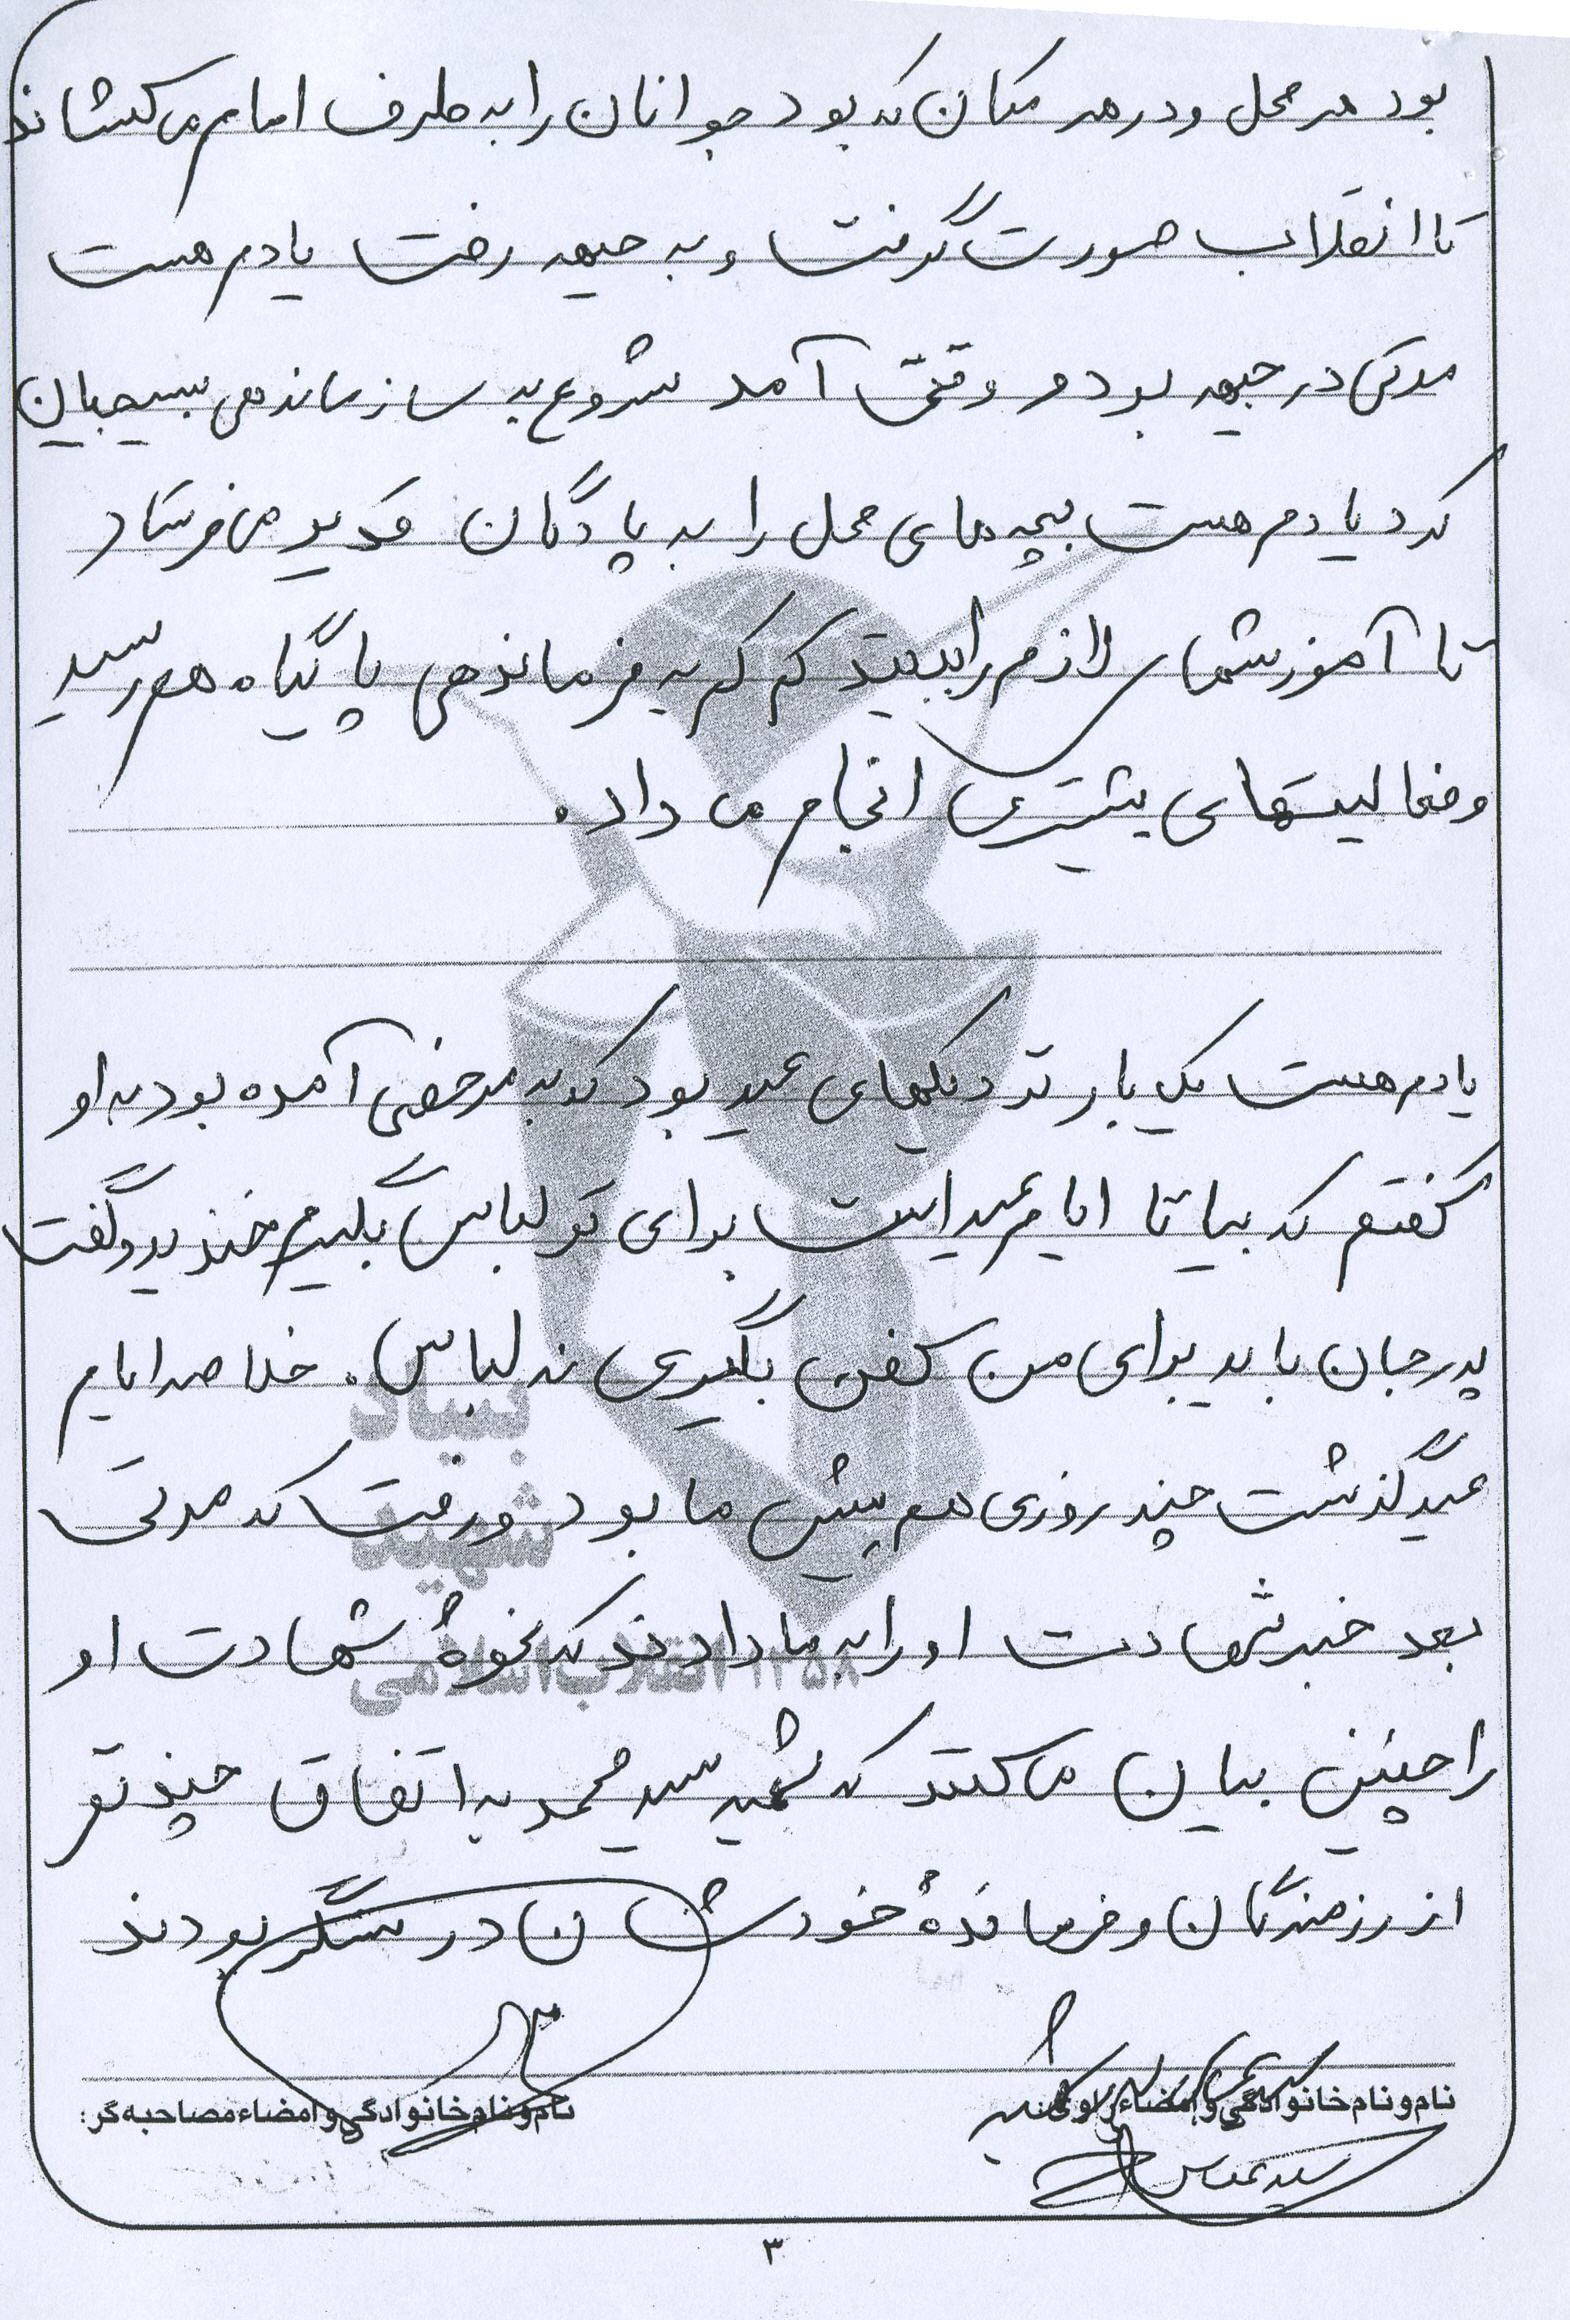 بود هر محل و در هر مکان که بود جوانان را به طرف امام می کشاند
تا انقلاب صورت گرفت و به جبهه رفت یادم هست
مدتی در جبهه بود و وقتی آمد شروع به سازماندهی بسیجیان
کرد یادم هست بچه های محل را به پادگان قدیر می فرستاد
تا آموزشهای لازم را ببیند کم کم به فرماندهی پایگاه هم رسید
و فعالیتهای بیشتری انجام می داد.
یادم هست یک بار نزدیکهای عید بود که به مرخصی آمده بود به او
گفتم که بیا تا ایام عید است برای تو لباس بگیرم خندید و گفت
پدر جان باید برای من کفن بگیری نه لباس. خلاصه ایام
عید گذشت چند روزی هم پیش ما بود و رفت که مدتی
بعد خبر شهادت او را به ما دادند که نحوهٔ شهادت او
را چنین بیان می کنند که شهید سید محمد به اتفاق چند نفر
از رزمندگان و فرماندهٔ خودشان در سنگر بودند
بنیاد
شهید
انقلاب اسلامی ۱۳۵۸
نام و نام خانوادگی و امضاء راوی:
نام و نام خانوادگی و امضاء مصاحبه گر:
سید عباس
۳